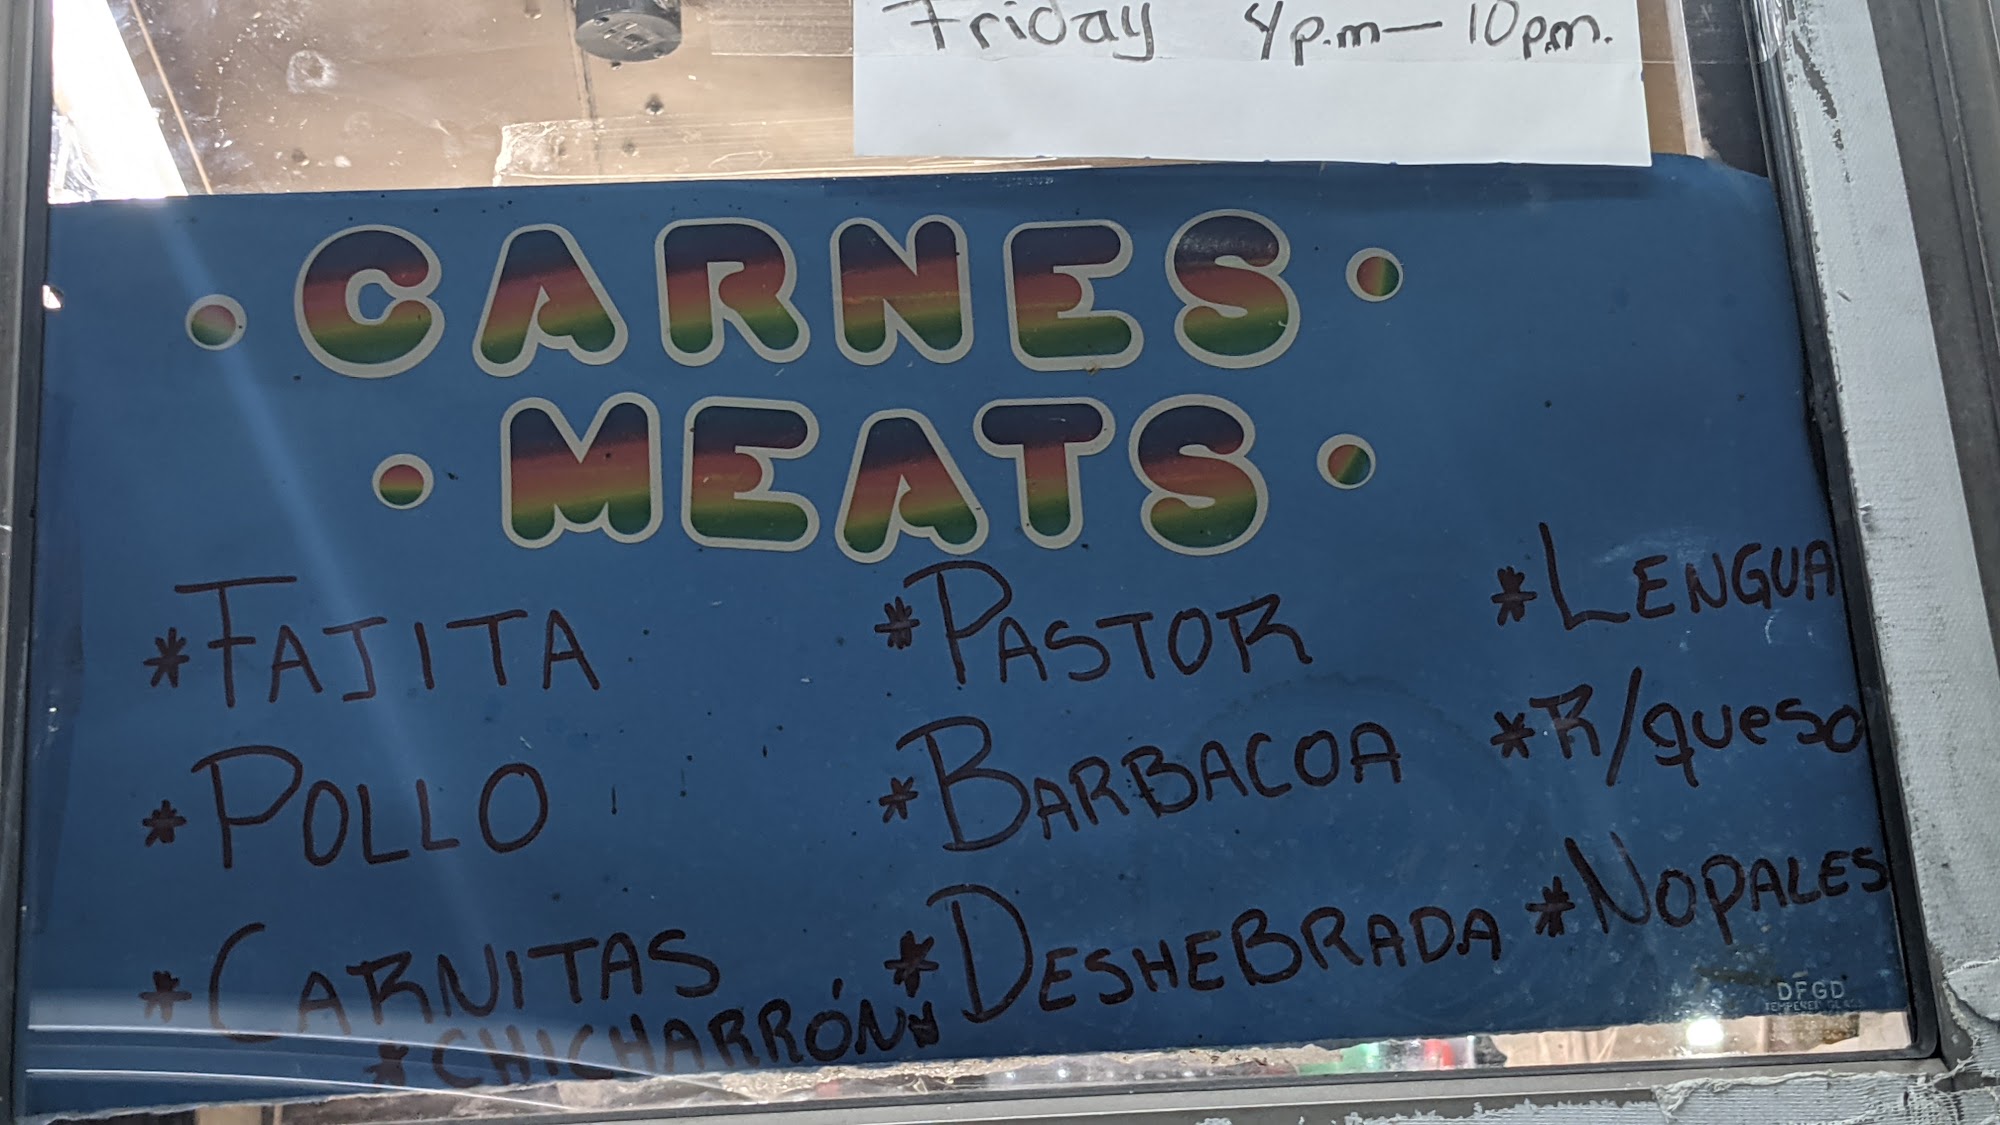 Friday 4p.m-10p.m.
• CARNES •
• MEATS •
*FAJITA
*POLLO
*CARNITAS
*CHICHARRÓN*
*PASTOR
*BARBACOA
*DESHEBRADA
*LENGUA
*R/queso
*NOPALES
DFGD
TEMPERED GLASS